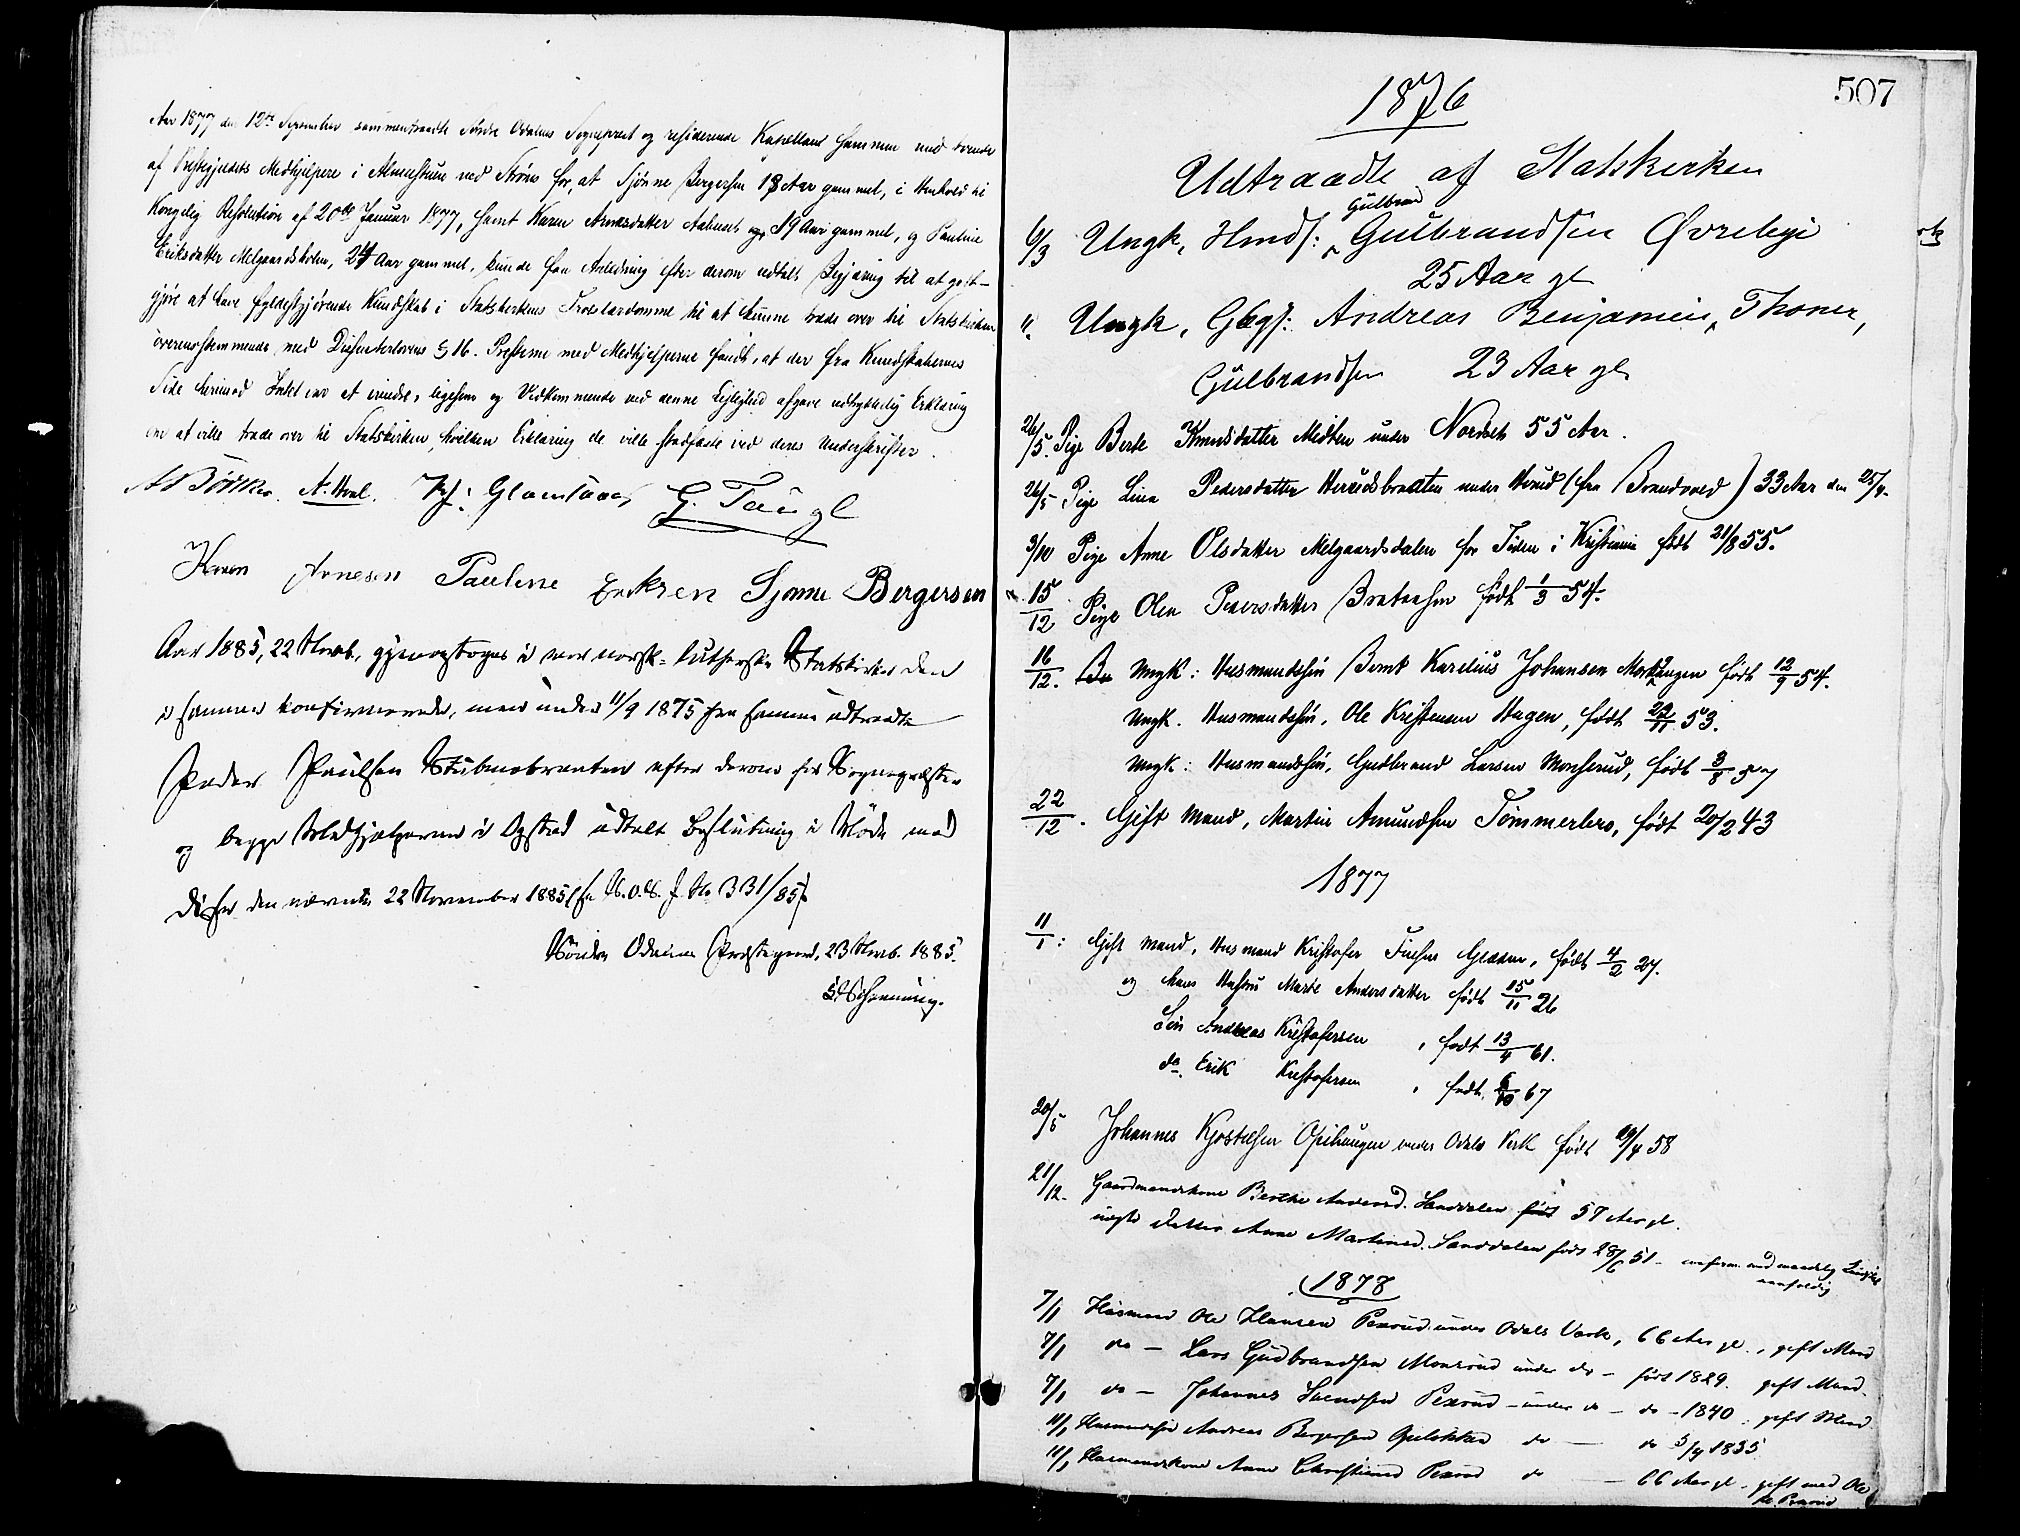 Aar 1877 den 12te September sammentraadte Søndre Odalens Sognepræst og residerende Kapellan sammen med tvende
af Præstegjeldets Medhjælpere i Almestuen ved Strøm for, at Sjønne Bergersen 18 Aar gammel, i Henhold til
Kongelig Resolution af 20de Januar 1877, samt Karen Arnesdatter 19 Aar gammel, og Pauline
Eriksdatter Melgaardsholen, 24 Aar gammel, kunde faa Anledning efter derom udtalt Begjæring til at godt-
gjøre at have fyldestgjørende Kundskab i Statskirkens Troeslærdomme til at kunne træde over til Statskirken
overensstemmende med Dissenterlovens § 16. Præsterne med Medhjelperne fandt, at der fra Kundskabernes
Side herimod Intet var at erindre, ligesom og Vedkommende ved denne Leilighed afgave udtrykkelig Erklæring
om at ville træde over til Statskirken, hvilken Erklæring de ville stadfæste ved deres Underskrifter.
A. Hval. G. Taugl
Karen Arnesen Pauline Eriksen Sjønne Bergersen
Aar 1885, 22 Novb. gjenoptoges i vor norsk-lutherske Statskirke den
i samme konfirmerede, men under 11/9 1875 fra samme udtraadte
Peder Paulsen Stubmobraaten efter derom for Sognepræsten
og begge Medhjælperne i Opstad udtalt Beslutning i Møde med
disse den nævnte 22 November 1885 331/85
Søndre Odalens Præstegaard, 23 Novb. 1885.
507
1876
Udtraadte af Statskirken
Gulbrand
6/3 Ungk. Hmds: Gulbrandsen Øvrebye
25 Aar gl
" Ungk, Gbgs: Andreas Benjamin, Thoner,
Gulbrandsen 23 Aar gl.
26/5. Pige Berte Knudsdatter Midtten under Nordset 55 Aar.
26/5 Pige Lina Pedersdatter Herredsbraaten under Herud (fra Brandvold) 33 Aar den 25/4.
3/10 Pige Anne Olsdatter Melgaardsdalen for Tiden i Kristiania født 21/8 55.
15/12 Pige Olea Pedersdatter født 1/3 54.
16/12. Ungk: Husmandssøn Bernt Karelius Johansen født 12/9 54.
Ungk. Husmandssøn, Ole Kristensen Hagen, født 29/11 53.
Ungk: Husmandssøn, Gudbrand Larsen Monserud, født 3/8 57
22/12. Gift Mand, Martin Amundsen Tømmerbers, født 20/2 43
1877
11/1: Gift Mand, Husmand Kristofer født 4/2 27.
og hans Hustru Marte Andersdatter født 15/11 26
Søn Andreas Kristofersen, født 13/4 61.
do. Erik Kristofersen, født 6/10 67
20/5 Johannes Kjostelsen Opihaugen under Odals Verk født 19/4 58
21/12. Gaardmandskone Berthe Andersd. Sanddalen født 57 Aar gl.
ugift Datter Anne Martinsd. Sanddalen født 28/6 51
1878
7/1 Husmand Ole Hansen Pexrud under Odals Værk, 66 Aar gl., gift Mand
7/1 do - Lars Gudbrandsen Monsrud under do - født 1829. gift Mand.
7/1 do - Johannes Svendsen Pexrud - under do - do - 1840. gift Mand
11/1 Husmandssøn Andreas Bergersen do - do 3/4 1835
11/1 Husmandskone Anne Christiansd Pexrud do - 66 Aar gl. gift med Ole
H. Pexrud